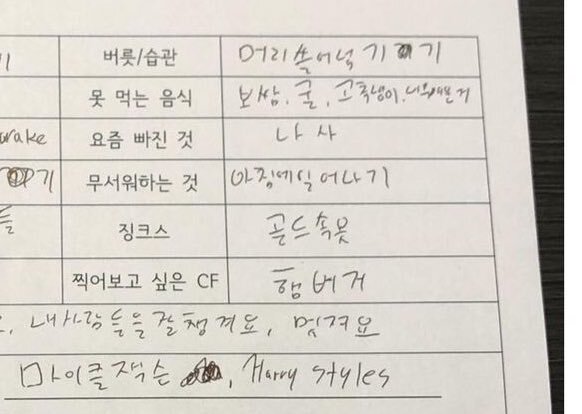 버릇/습관 머리 쓸어넘기기
못 먹는 음식 보쌈, 굴, 고추냉이, 너무매운거
rake 요즘 빠진 것 나사
기 무서워하는 것 아침에일어나기
들 징크스 골드속옷
찍어보고 싶은 CF 햄버거
내사람들을잘챙겨요,
마이클잭슨, Harry Styles